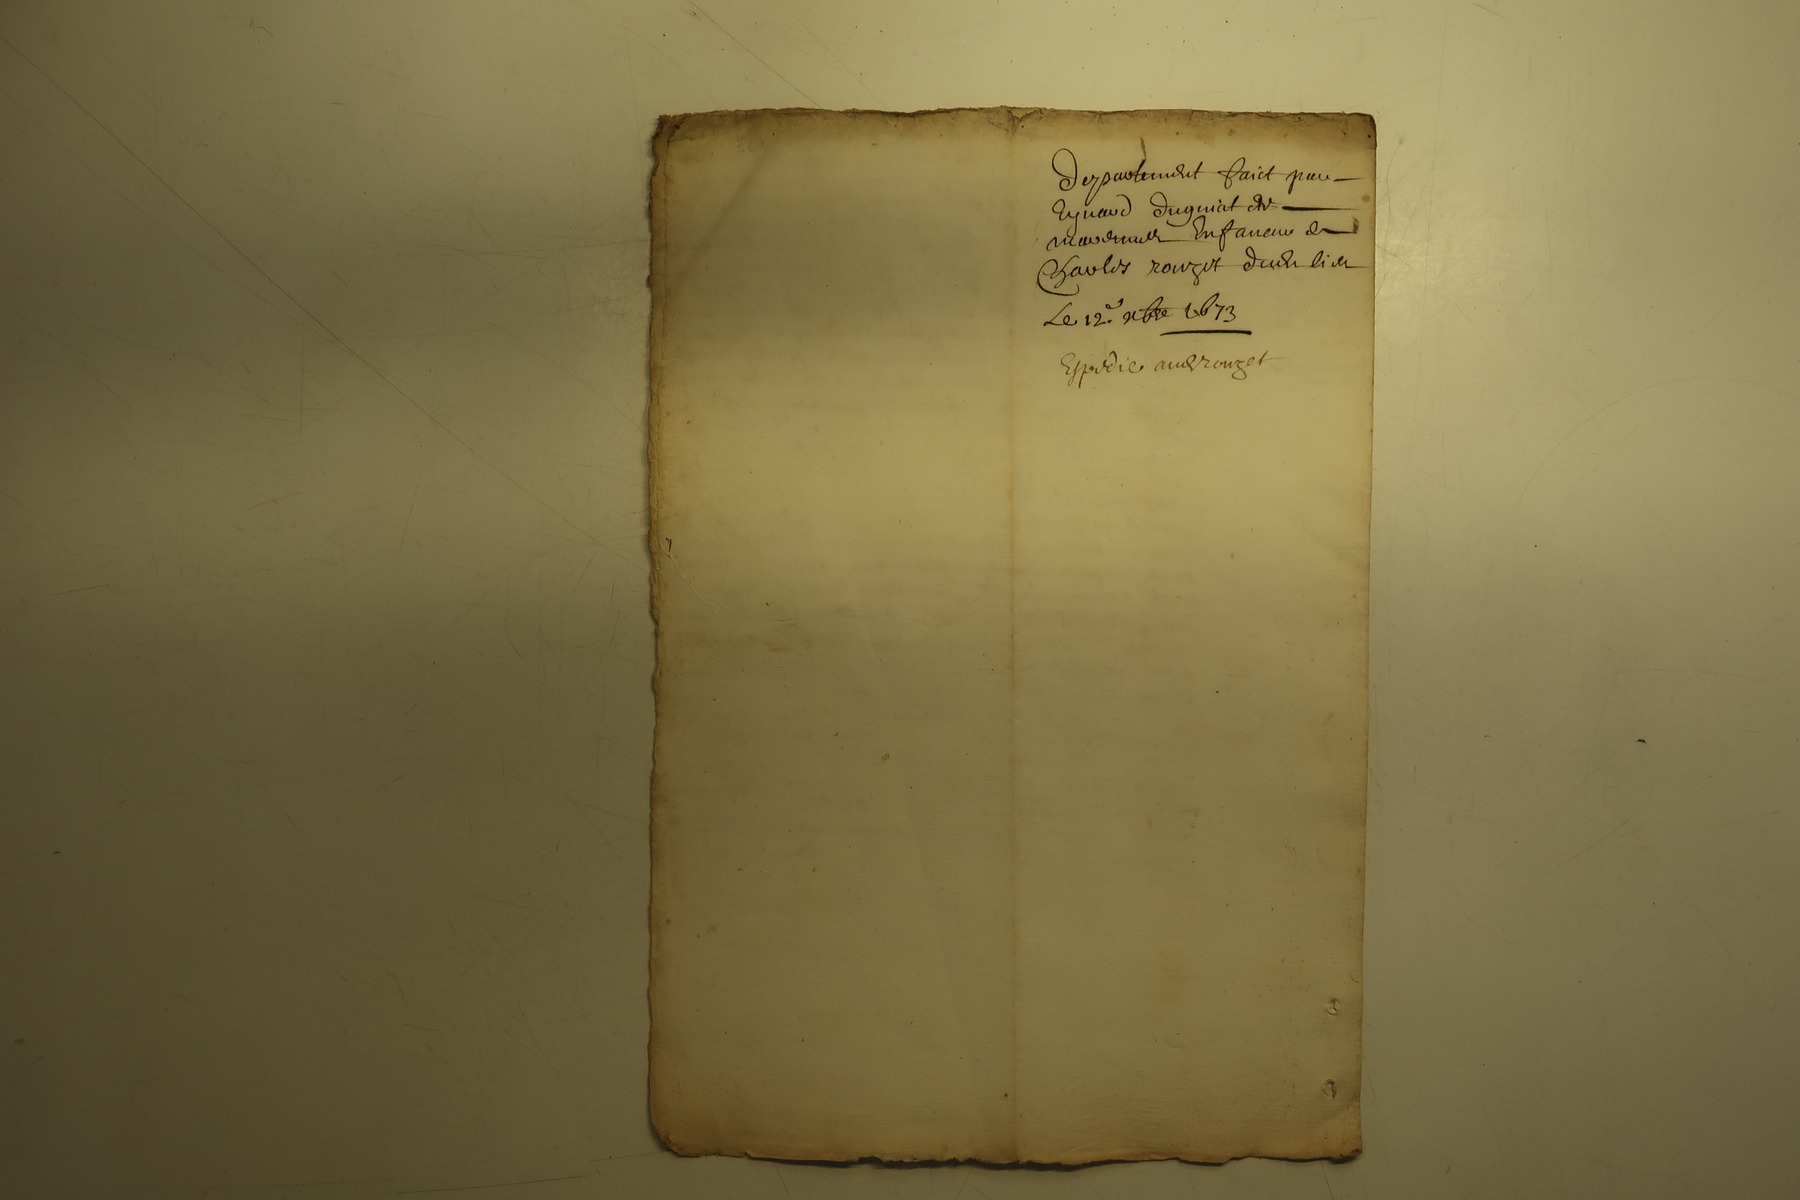 Departement faict par
Eynard Duguiat de
en faveur de
Charles rouget dudit lieu
Le 12e xbre 1673
Expedie aud rouget